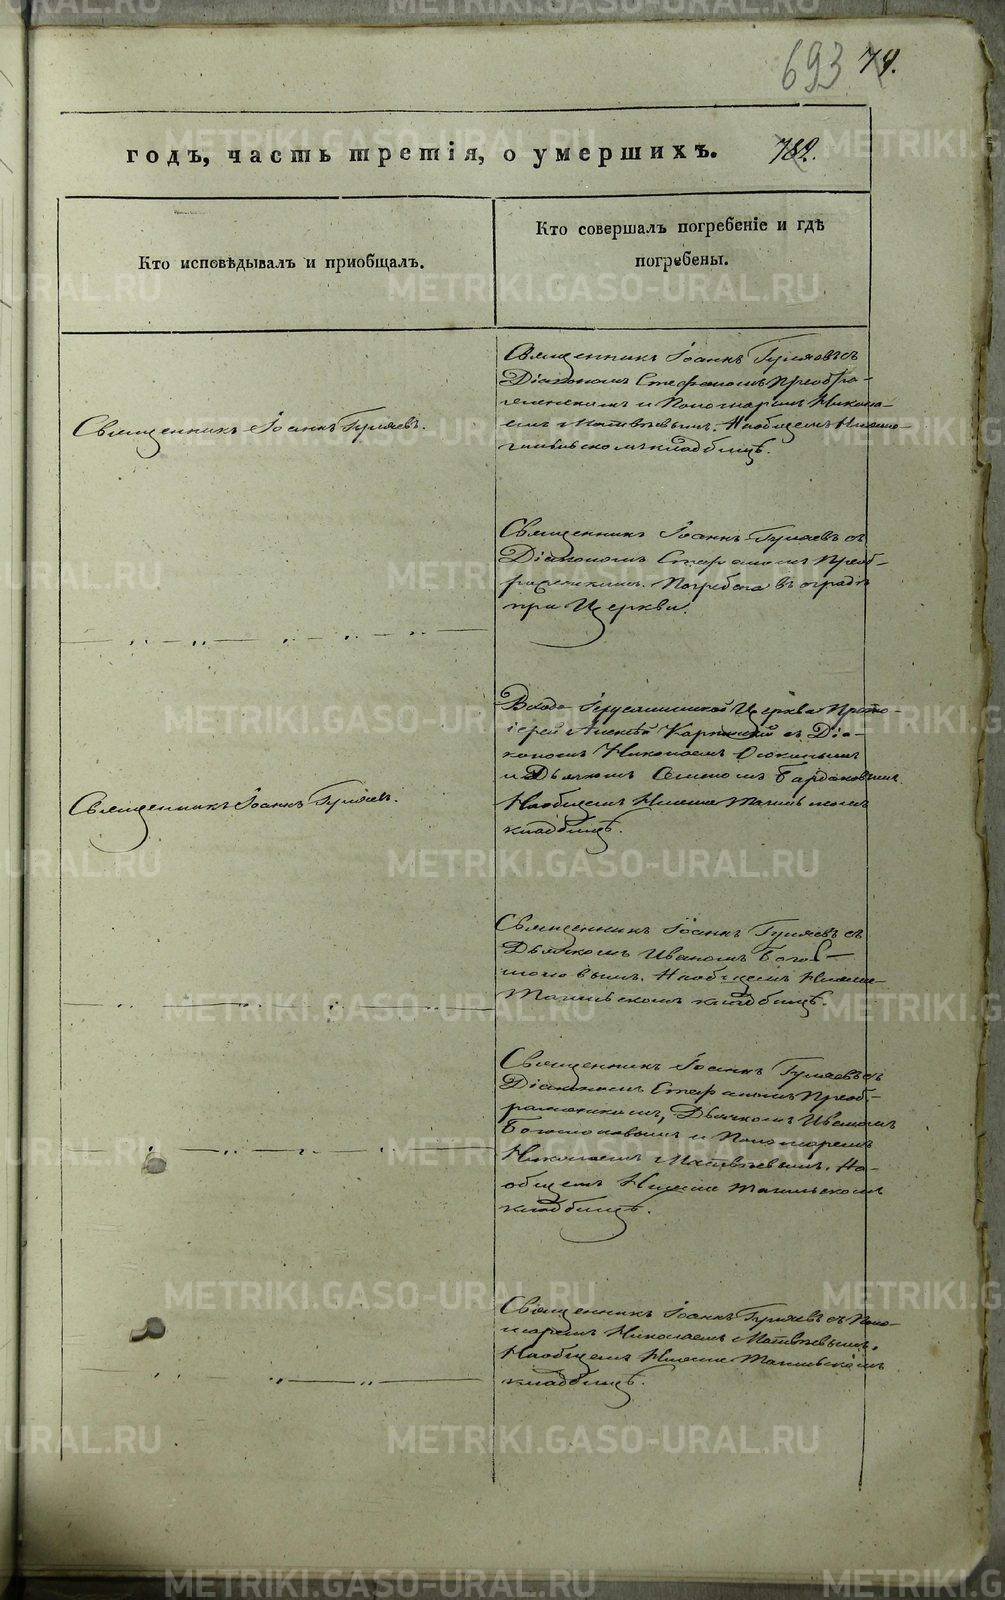 693
годъ, часть третія, о умершихъ.
Кто исповѣдывалъ и пріобщалъ.
Кто совершалъ погребеніе и гдѣ
погребены.
Священникъ Іоаннъ Гуляевъ.
Священникъ Іоаннъ Гуляевъ съ
Діакономъ Стефаномъ Преобра-
женскимъ и Пономаремъ Никола-
емъ Матвѣевымъ. На общемъ Нижне-
тагильскомъ кладбищѣ.
Священникъ Іоаннъ Гуляевъ съ
Діакономъ Стефаномъ Преоб-
раженскимъ. Погребена въ оградѣ
при Церкви.
Священникъ Іоаннъ Гуляевъ.
Входо Іерусалимской Церкви Прото-
іерей Алексѣй Карпинскій съ Діа-
кономъ Николаемъ
и Дьячкомъ
На общемъ Нижне Тагильскомъ
кладбищѣ.
Священникъ Іоаннъ Гуляевъ съ
Дьячкомъ Иваномъ Бого-
мовымъ. На общемъ Нижне
Тагильскомъ кладбищѣ.
Священникъ Іоаннъ Гуляевъ съ
Діакономъ Стефаномъ Преоб-
раженскимъ, Дьячкомъ Иваномъ
и Пономаремъ
Николаемъ Матвѣевымъ. На
общемъ Нижне Тагильскомъ
кладбищѣ.
Священникъ Іоаннъ Гуляевъ съ Поно-
маремъ Николаемъ Матвѣевымъ.
На общемъ Нижне Тагильскомъ
кладбищѣ.
METRIKI.GASO-URAL.RU